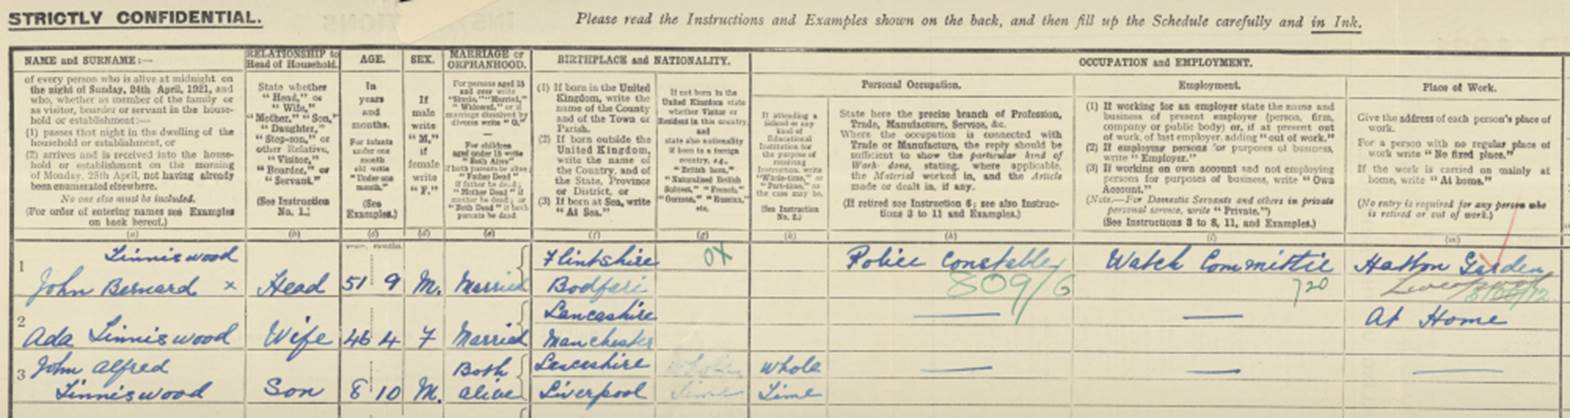 STRICTLY CONFIDENTIAL.
Please read the Instructions and Examples shown on the back, and then fill up the Schedule carefully and in Ink.
NAME and SURNAME:—
of every person who is alive at midnight on
the night of Sunday, 24th April, 1921, and
who, whether as member of the family or
as visitor, boarder or servant in the house-
hold or establishment:—
(1) passes that night in the dwelling of the
household or establishment, or
(2) arrives and is received into the house-
hold or establishment on the morning
of Monday, 25th April, not having already
been enumerated elsewhere.
No one else must be included.
(For order of entering names see Examples
on back hereof.)
(a)
RELATIONSHIP to
Head of Household.
State whether
"Head," or
"Wife,"
"Mother," "Son,"
"Daughter,"
"Step-son," or
other Relative,
"Visitor,"
"Boarder," or
"Servant."
(See Instruction
No. 1.)
(b)
AGE.
In
years
and
months.
For infants
under one
month
old write
"Under one
month."
(See
Examples.)
(c)
SEX.
If
male
write
"M,"
if
female
write
"F."
(d)
MARRIAGE or
ORPHANHOOD.
For persons aged 15
and over write
"Single," "Married,"
"Widowed," or if
marriage dissolved by
divorce write "D."
For children
aged under 15 write
"Both Alive"
if both parents be alive;
"Father Dead"
if father be dead;
"Mother Dead" if
mother be dead; or
"Both Dead" if both
parents be dead
(e)
BIRTHPLACE and NATIONALITY.
(1) If born in the United
Kingdom, write the
name of the County
and of the Town or
Parish.
(2) If born outside the
United Kingdom,
write the name of
the Country, and of
the State, Province
or District, or
(3) If born at Sea, write
"At Sea."
(f)
If not born in the
United Kingdom state
whether Visitor or
Resident in this country,
and
state also nationality
if born in a foreign
country, e.g.,
"British born,"
"Naturalised British
Subject," "French,"
"German," "Russian,"
etc.
(g)
OCCUPATION and EMPLOYMENT.
If attending a
School or any
kind of
Educational
Institution for
the purpose of
receiving
Instruction, write
"Whole-time," or
"Part-time," as
the case may be.
(See Instruction
No. 2.)
Personal Occupation.
State here the precise branch of Profession,
Trade, Manufacture, Service, &c.
Where the occupation is connected with
Trade or Manufacture, the reply should be
sufficient to show the particular kind of
Work done, stating, where applicable,
the Material worked in, and the Article
made or dealt in, if any.
(If retired see Instruction 6; see also Instruc-
tions 3 to 11 and Examples.)
(k)
Employment.
(1) If working for an employer state the name and
business of present employer (person, firm,
company or public body) or, if at present out
of work, of last employer, adding "out of work."
(2) If employing persons for purposes of business,
write "Employer."
(3) If working on own account and not employing
persons for purposes of business, write "Own
Account."
(Note.—For Domestic Servants and others in private
personal service, write "Private.")
(See Instructions 3 to 8, 11, and Examples.)
(l)
Place of Work.
Give the address of each person's place of
work.
For a person with no regular place of
work write "No fixed place."
If the work is carried on mainly at
home, write "At home."
(No entry is required for any person who
is retired or out of work.)
(m)
years. months.
1
Linniswood
John Bernard × Head 51 9 M. Married
Flintshire
Bodfari
OX
Police Constable
809/6
Watch Committie
720
Hatton Garden
Liverpool
2
Ada Linniswood Wife 46 4 F Married
Lancashire
Manchester
At Home
3
John Alfred
Linniswood Son 8 10 M. Both
alive
Lancashire
Liverpool
Whole
Time